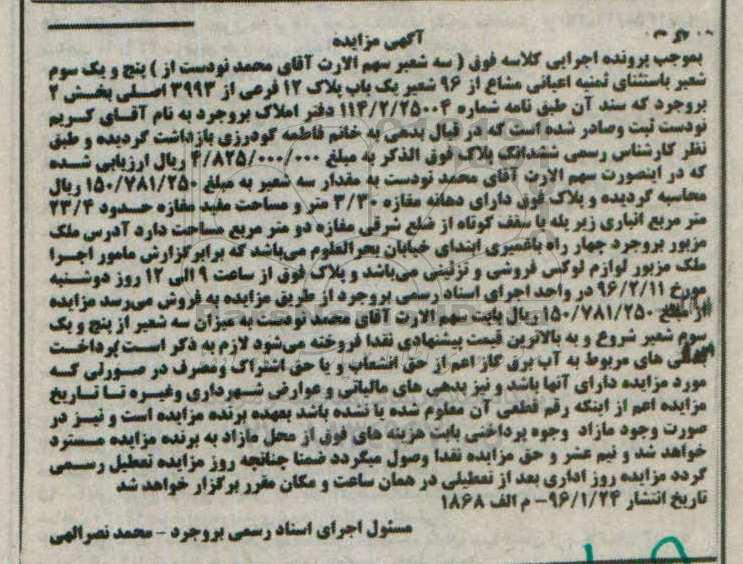 آگهی مزایده
بموجب پرونده اجرایی کلاسه فوق ( سه شعیر سهم الارث آقای محمد نودست از ) پنج و یک سوم
شعیر باستثنای ثمنیه اعیانی مشاع از ۹۶ شعیر یک باب پلاک ۱۲ فرعی از ۳۹۹۳ اصلی بخش ۲
بروجرد که سند آن طبق نامه شماره ۱۱۴/۲/۲۵۰۰۴ دفتر املاک بروجرد به نام آقای کریم
نودست ثبت وصادر شده است که در قبال بدهی به خانم فاطمه گودرزی بازداشت گردیده و طبق
نظر کارشناس رسمی ششدانگ پلاک فوق الذکر به مبلغ ۴/۸۲۵/۰۰۰/۰۰۰ ریال ارزیابی شده
که در اینصورت سهم الارث آقای محمد نودست به مقدار سه شعیر به مبلغ ۱۵۰/۷۸۱/۲۵۰ ریال
محاسبه گردیده و پلاک فوق دارای دهانه مغازه ۳/۳۰ متر و مساحت مفید مغازه حدود ۲۳/۴
متر مربع انباری زیر پله با سقف کوتاه از ضلع شرقی مغازه دو متر مربع مساحت دارد آدرس ملک
مزبور بروجرد چهار راه باغمیری ابتدای خیابان بحرالعلوم می‌باشد که برابر گزارش مامور اجرا
ملک مزبور لوازم لوکس فروشی و تزئینی می‌باشد و پلاک فوق از ساعت ۹ الی ۱۲ روز دوشنبه
مورخ ۹۶/۲/۱۱ در واحد اجرای اسناد رسمی بروجرد از طریق مزایده به فروش می‌رسد مزایده
از مبلغ ۱۵۰/۷۸۱/۲۵۰ ریال بابت سهم الارث آقای محمد نودست به میزان سه شعیر از پنج و یک
سوم شعیر شروع و به بالاترین قیمت پیشنهادی نقدا فروخته می‌شود لازم به ذکر است پرداخت
بدهی های مربوط به آب برق گاز اعم از حق انشعاب و یا حق اشتراک ومصرف در صورتی که
مورد مزایده دارای آنها باشد و نیز بدهی های مالیاتی و عوارض شهرداری وغیره تا تاریخ
مزایده اعم از اینکه رقم قطعی آن معلوم شده یا نشده باشد بعهده برنده مزایده است و نیز در
صورت وجود مازاد وجوه پرداختی بابت هزینه های فوق از محل مازاد به برنده مزایده مسترد
خواهد شد و نیم عشر و حق مزایده نقدا وصول میگردد ضمنا چنانچه روز مزایده تعطیل رسمی
گردد مزایده روز اداری بعد از تعطیلی در همان ساعت و مکان مقرر برگزار خواهد شد
تاریخ انتشار ۹۶/۱/۲۴ - م الف ۱۸۶۸
مسئول اجرای اسناد رسمی بروجرد - محمد نصرالهی